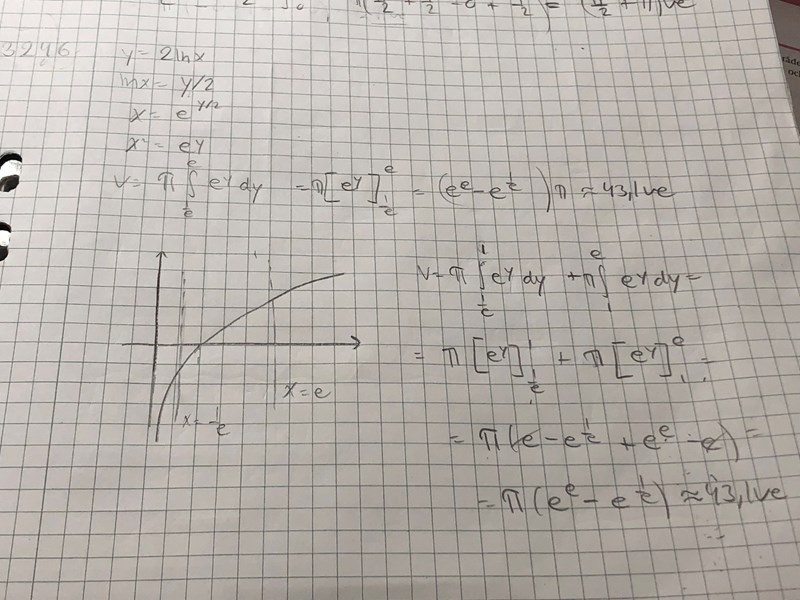 3246
y = 2lnx
lnx = y/2
x = e^{y/2}
x² = e^y
V = π∫_{1/e}^{e} e^y dy = π[e^y]_{1/e}^{e} = (e^e - e^{1/e})π ≈ 43,1 ve
V = π∫_{1/e}^{1} e^y dy + π∫_{1}^{e} e^y dy =
= π[e^y]_{1/e}^{1} + π[e^y]_{1}^{e} =
x = e
x = 1/e
= π(e - e^{1/e} + e^e - e) =
= π(e^e - e^{1/e}) ≈ 43,1 ve